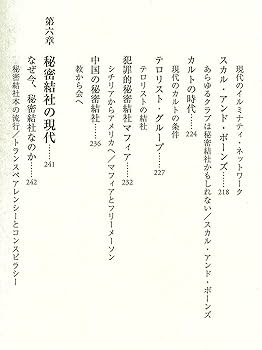 現代のイルミナティ・ネットワーク
スカル・アンド・ボーンズ……218
あらゆるクラブは秘密結社かもしれない／スカル・アンド・ボーンズ
カルトの時代……224
現代のカルトの条件
テロリスト・グループ……227
テロリストの結社
犯罪的秘密結社マフィア……232
シチリアからアメリカへ／マフィアとフリーメーソン
中国の秘密結社……236
教から会へ
第六章　秘密結社の現代……241
なぜ今、秘密結社なのか……242
秘密結社本の流行／トランスペアレンシーとコンスピラシー